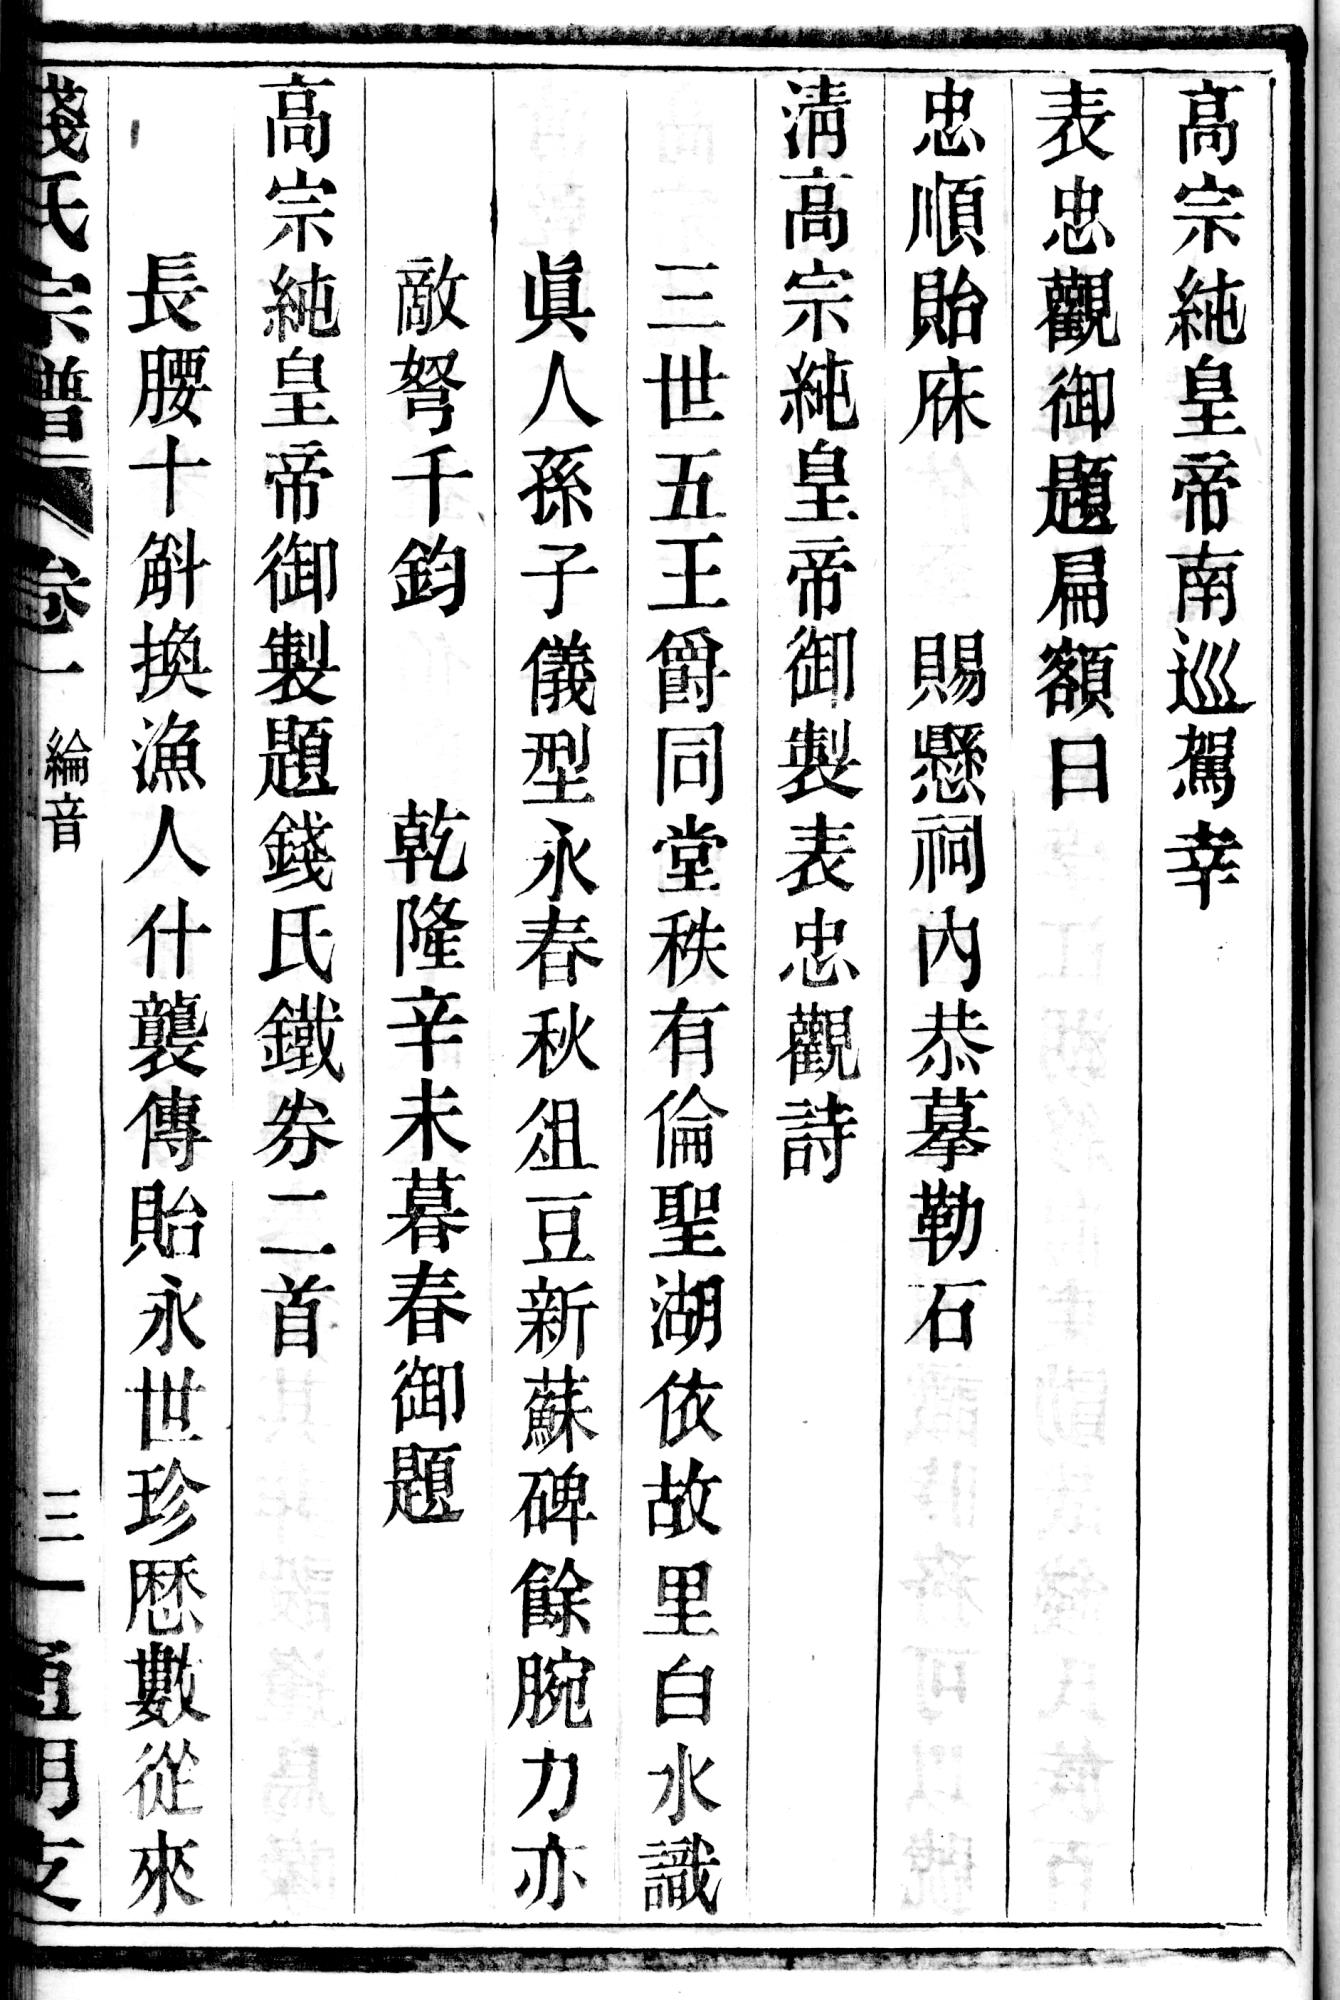 高宗純皇帝南巡駕幸
表忠觀御題扁額曰
忠順貽庥 賜懸祠內恭摹勒石
淸高宗純皇帝御製表忠觀詩
三世五王爵同堂秩有倫聖湖依故里白水識
眞人孫子儀型永春秋俎豆新蘇碑餘腕力亦
敵弩千鈞 乾隆辛未暮春御題
高宗純皇帝御製題錢氏鐵券二首
長腰十斛換漁人什襲傳貽永世珍歷數從來
錢氏宗譜 卷一 綸音 三 通明支